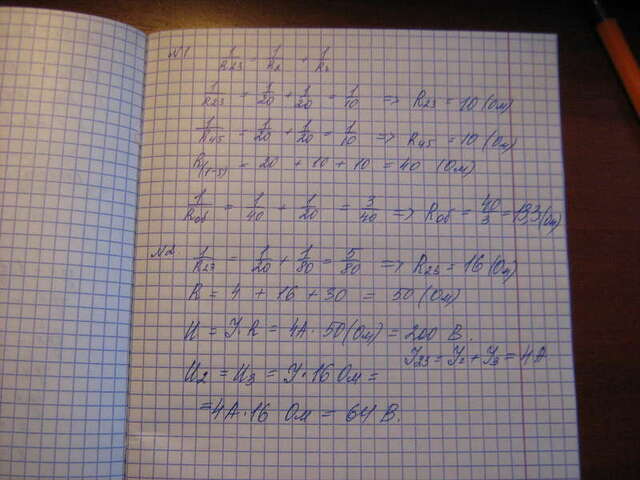 №1 1/R23 = 1/R2 + 1/R3
1/R23 = 1/20 + 1/20 = 1/10 => R23 = 10 (Ом)
1/R45 = 1/20 + 1/20 = 1/10 => R45 = 10 (Ом)
R(1-5) = 20 + 10 + 10 = 40 (Ом)
1/Rоб = 1/40 + 1/20 = 3/40 => Rоб = 40/3 = 13,3 (Ом)
№2. 1/R23 = 1/20 + 1/80 = 5/80 => R23 = 16 (Ом)
R = 4 + 16 + 30 = 50 (Ом)
U = I·R = 4А · 50 (Ом) = 200 В.
I23 = I2 + I3 = 4А
U2 = U3 = I · 16 Ом =
= 4А · 16 Ом = 64 В.